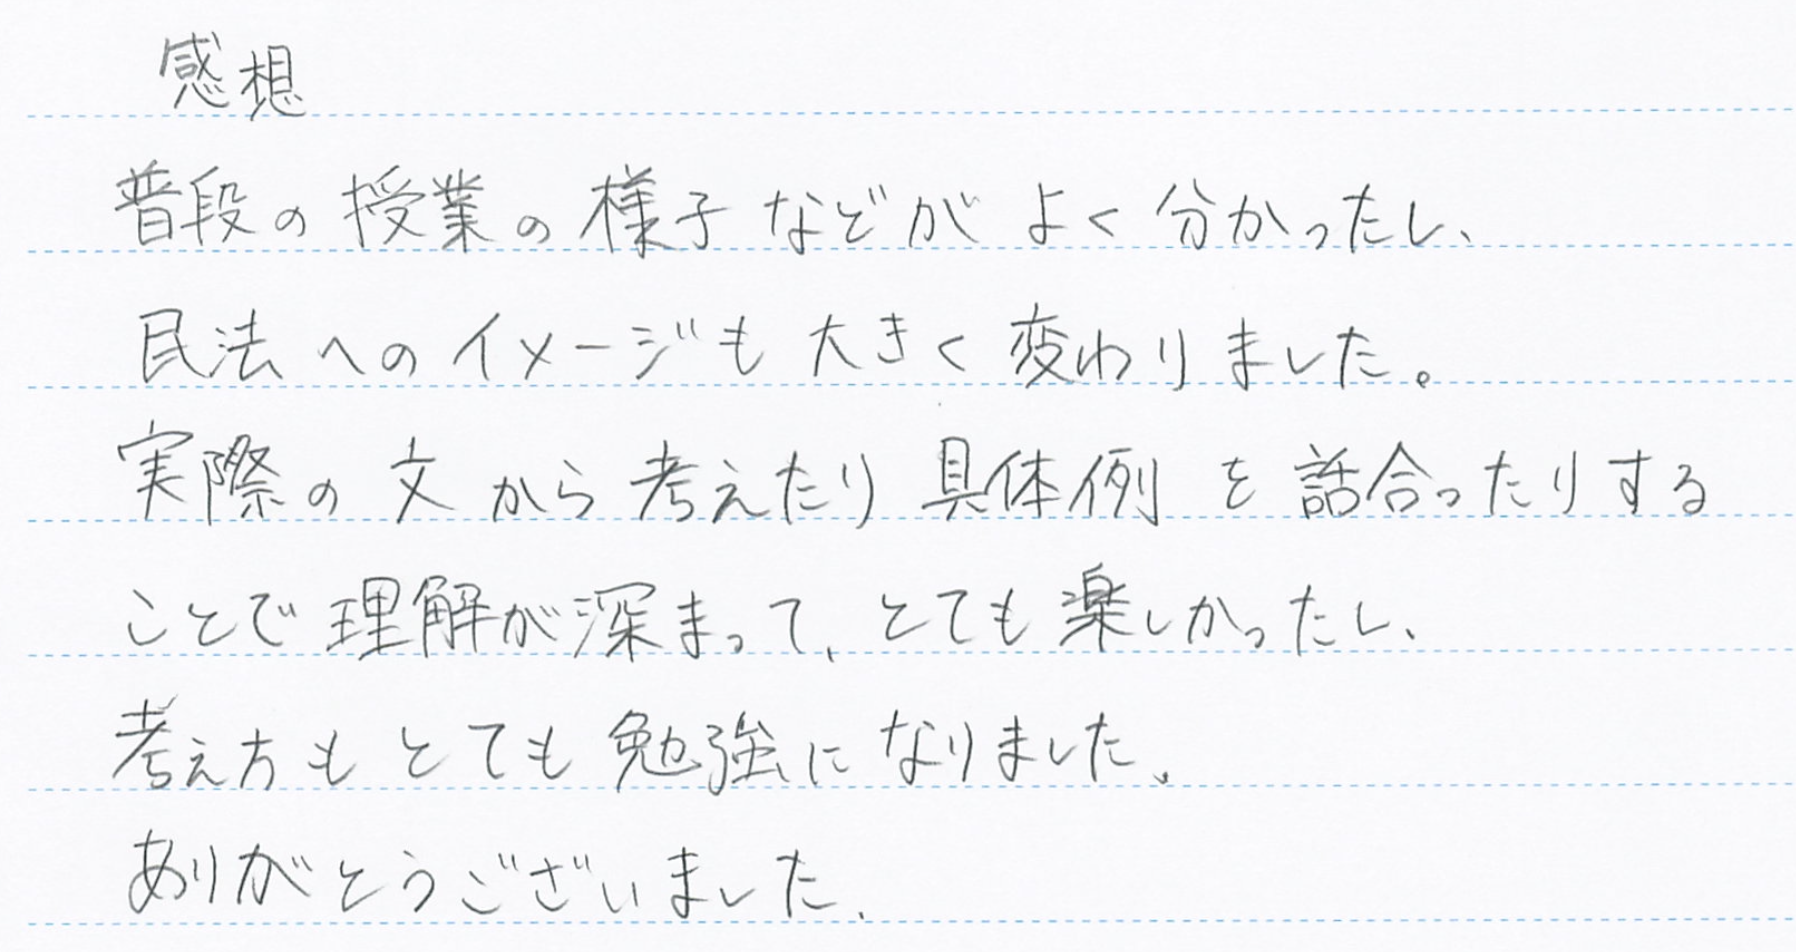 感想
普段の授業の様子などがよく分かったし、
民法へのイメージも大きく変わりました。
実際の文から考えたり具体例を話合ったりする
ことで理解が深まって、とても楽しかったし、
考え方もとても勉強になりました。
ありがとうございました。